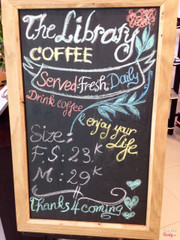 The Library
COFFEE
Served Fresh Daily
Drink coffee
enjoy your
Life
Size:
F.S: 23K
M.: 29K
Thanks 4 coming